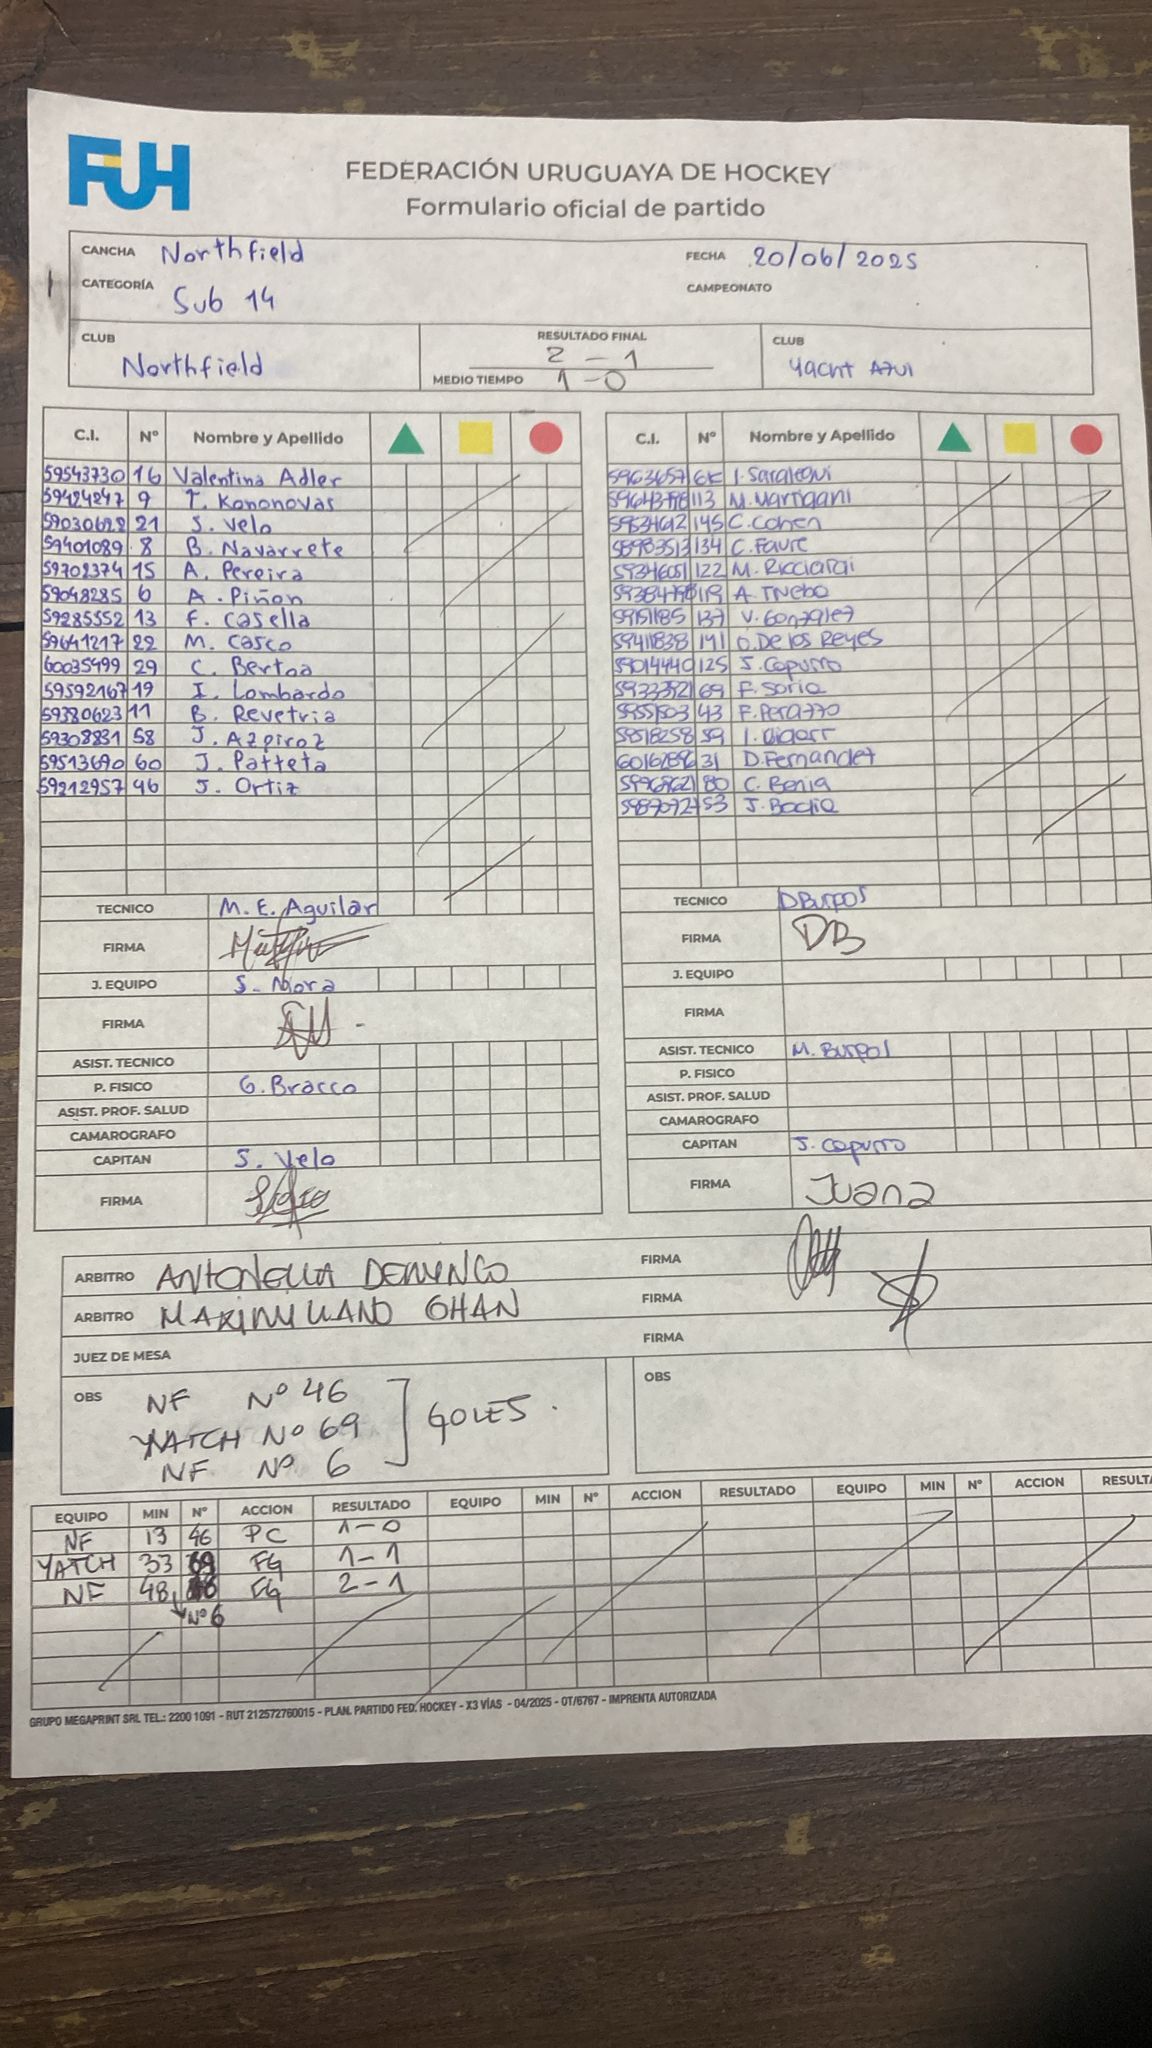 FUH
FEDERACIÓN URUGUAYA DE HOCKEY
Formulario oficial de partido
CANCHA Northfield FECHA 20/06/2025
CATEGORÍA Sub 14 CAMPEONATO
CLUB Northfield RESULTADO FINAL 2-1 CLUB Yacht Azul
MEDIO TIEMPO 1-0
C.I. Nº Nombre y Apellido
59543730 16 Valentina Adler
59424247 9 T. Kononovas
59030628 21 S. Velo
59401089 8 B. Navarrete
59702374 15 A. Pereira
59048285 6 A. Piñon
59285552 13 F. Casella
59641217 22 M. Casco
60035499 29 C. Bertoa
59592167 19 I. Lombardo
59380623 11 B. Revetria
59308831 58 J. Azpiroz
59513690 60 J. Patteta
59212957 46 J. Ortiz
TECNICO M. E. Aguilar
FIRMA
J. EQUIPO S. Mora
FIRMA
ASIST. TECNICO
P. FISICO G. Bracco
ASIST. PROF. SALUD
CAMAROGRAFO
CAPITAN S. Velo
FIRMA
C.I. Nº Nombre y Apellido
I. Saralegui
113 M. Marrigani
145 C. Cohen
134 C. Faure
122 M. Ricciardi
A. Trebo
137 V. Gonzalez
141 O. De los Reyes
59014440 125 J. Capurro
69 F. Soria
43 F. Perazzo
59518258 59
31 D. Fernandez
80 C. Benia
53 J. Badia
TECNICO D Burgos
FIRMA DB
J. EQUIPO
FIRMA
ASIST. TECNICO M. Burgos
P. FISICO
ASIST. PROF. SALUD
CAMAROGRAFO
CAPITAN J. Capurro
FIRMA Juana
ARBITRO ANTONELLA DOMINGO FIRMA
ARBITRO MAXIMILIANO CHAN FIRMA
JUEZ DE MESA FIRMA
OBS NF Nº 46
YATCH Nº 69 GOLES.
NF Nº 6
OBS
EQUIPO MIN Nº ACCION RESULTADO EQUIPO MIN Nº ACCION RESULTADO EQUIPO MIN Nº ACCION RESULTA
NF 13 46 PC 1-0
YATCH 33 69 FG 1-1
NF 48 FG 2-1
Nº 6
GRUPO MEGAPRINT SRL TEL.: 2200 1091 - RUT 212572760015 - PLAN. PARTIDO FED. HOCKEY - X3 VÍAS - 04/2025 - OT/6767 - IMPRENTA AUTORIZADA